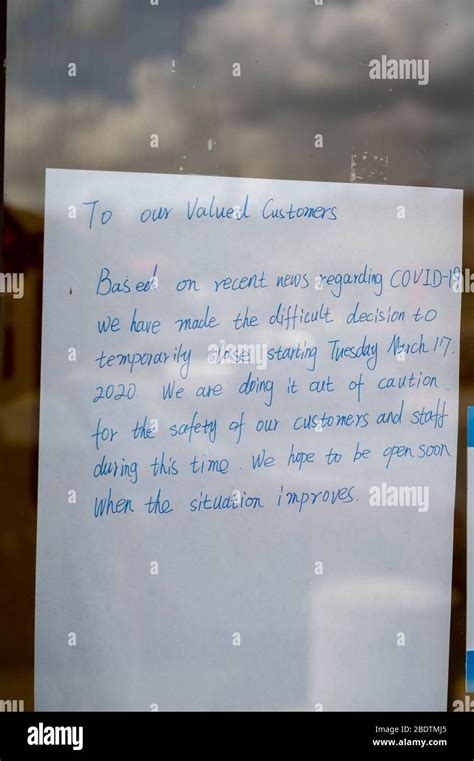 To our Valued Customers
Based on recent news regarding COVID-19
we have made the difficult decision to
temporarily close starting Tuesday March 17.
2020. We are doing it out of caution.
for the safety of our customers and staff
during this time. We hope to be open soon
when the situation improves.
alamy
alamy
alamy
alamy
Image ID: 2BDTMJ5
www.alamy.com